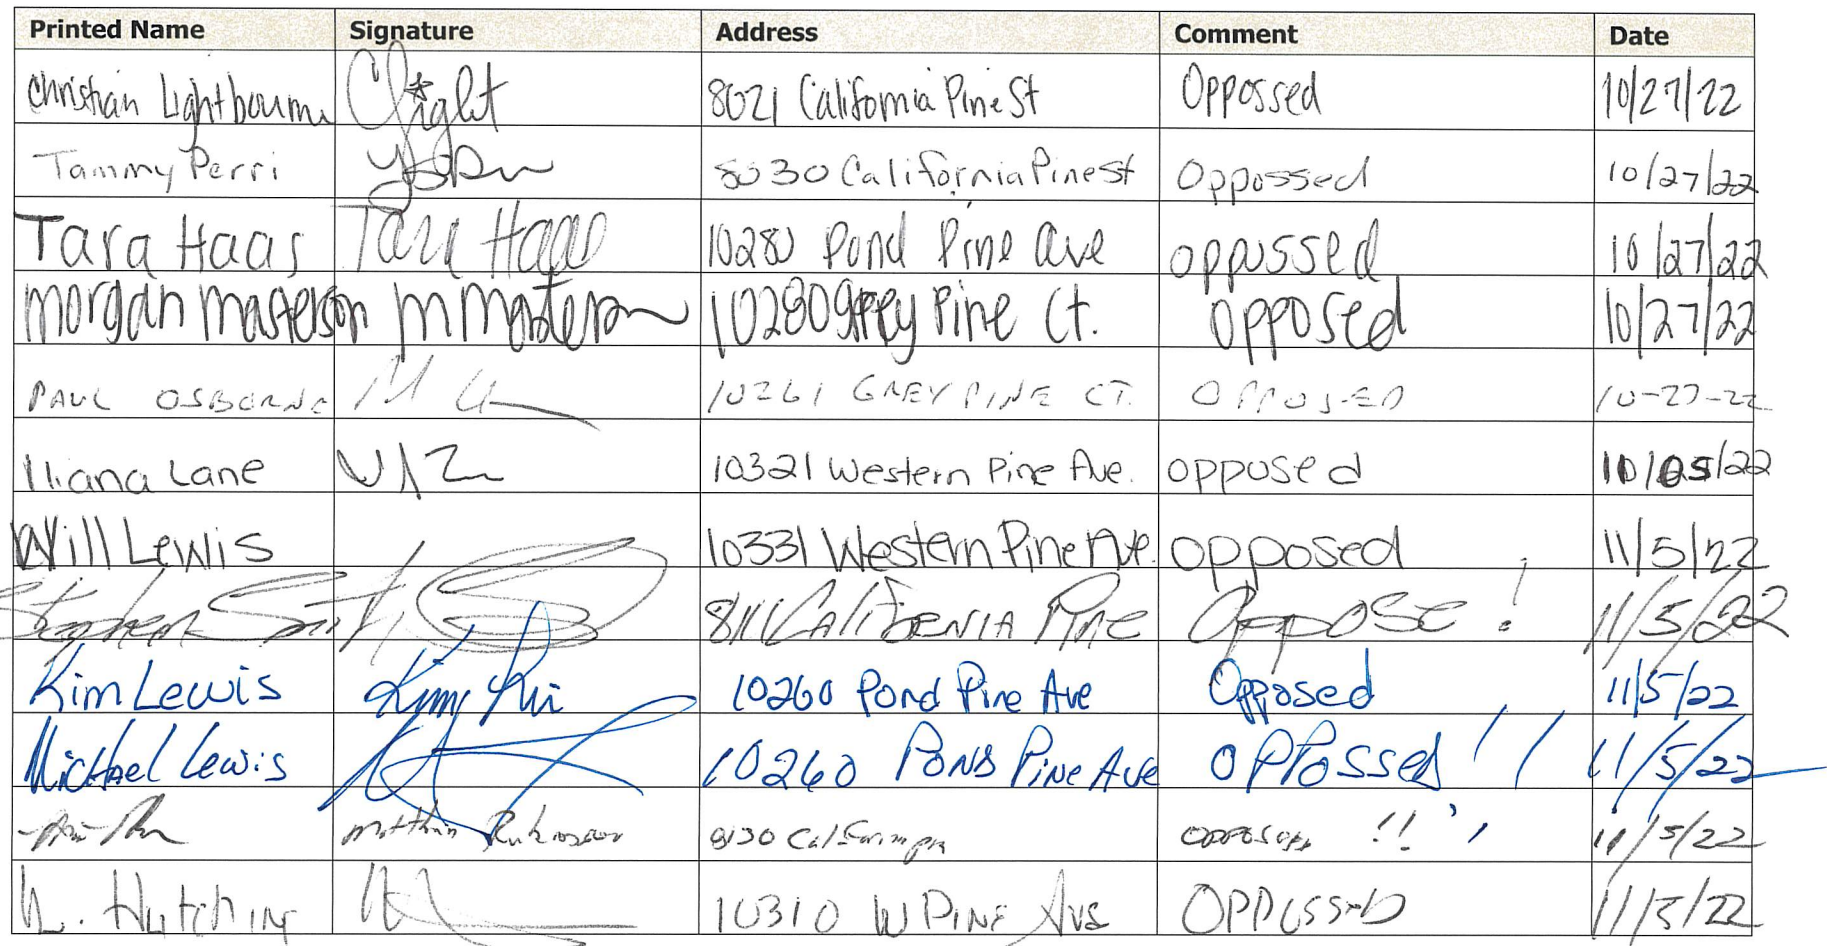 Printed Name Signature Address Comment Date
Christian Lightbourn Clight 8021 California Pine St Oppossed 10/27/22
Tammy Perri 8030 California Pine St Oppossed 10/27/22
Tara Haas Tara Haas 10280 Pond Pine Ave oppossed 10/27/22
Morgan Masterson M Masterson 10280 Grey Pine Ct. opposed 10/27/22
PAUL OSBORNE 10261 GREY PINE CT. OPPOSED 10-27-22
Iliana Lane 10321 Western Pine Ave. opposed 10/05/22
Will Lewis 10331 Western Pine Ave. opposed 11/5/22
Stephen Smith 8111 California Pine Oppose! 11/5/22
Kim Lewis 10260 Pond Pine Ave Opposed 11/5/22
Michael Lewis 10260 Pond Pine Ave OPPossed!! 11/5/22
Matthew 8130 !! 11/5/22
10310 W Pine Ave OPPOSED 11/5/22